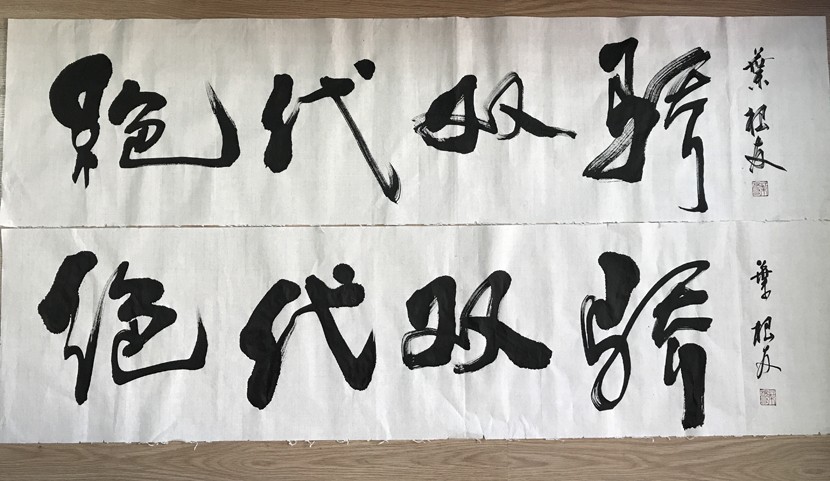 绝代双骄
葉根友
绝代双骄
葉根友